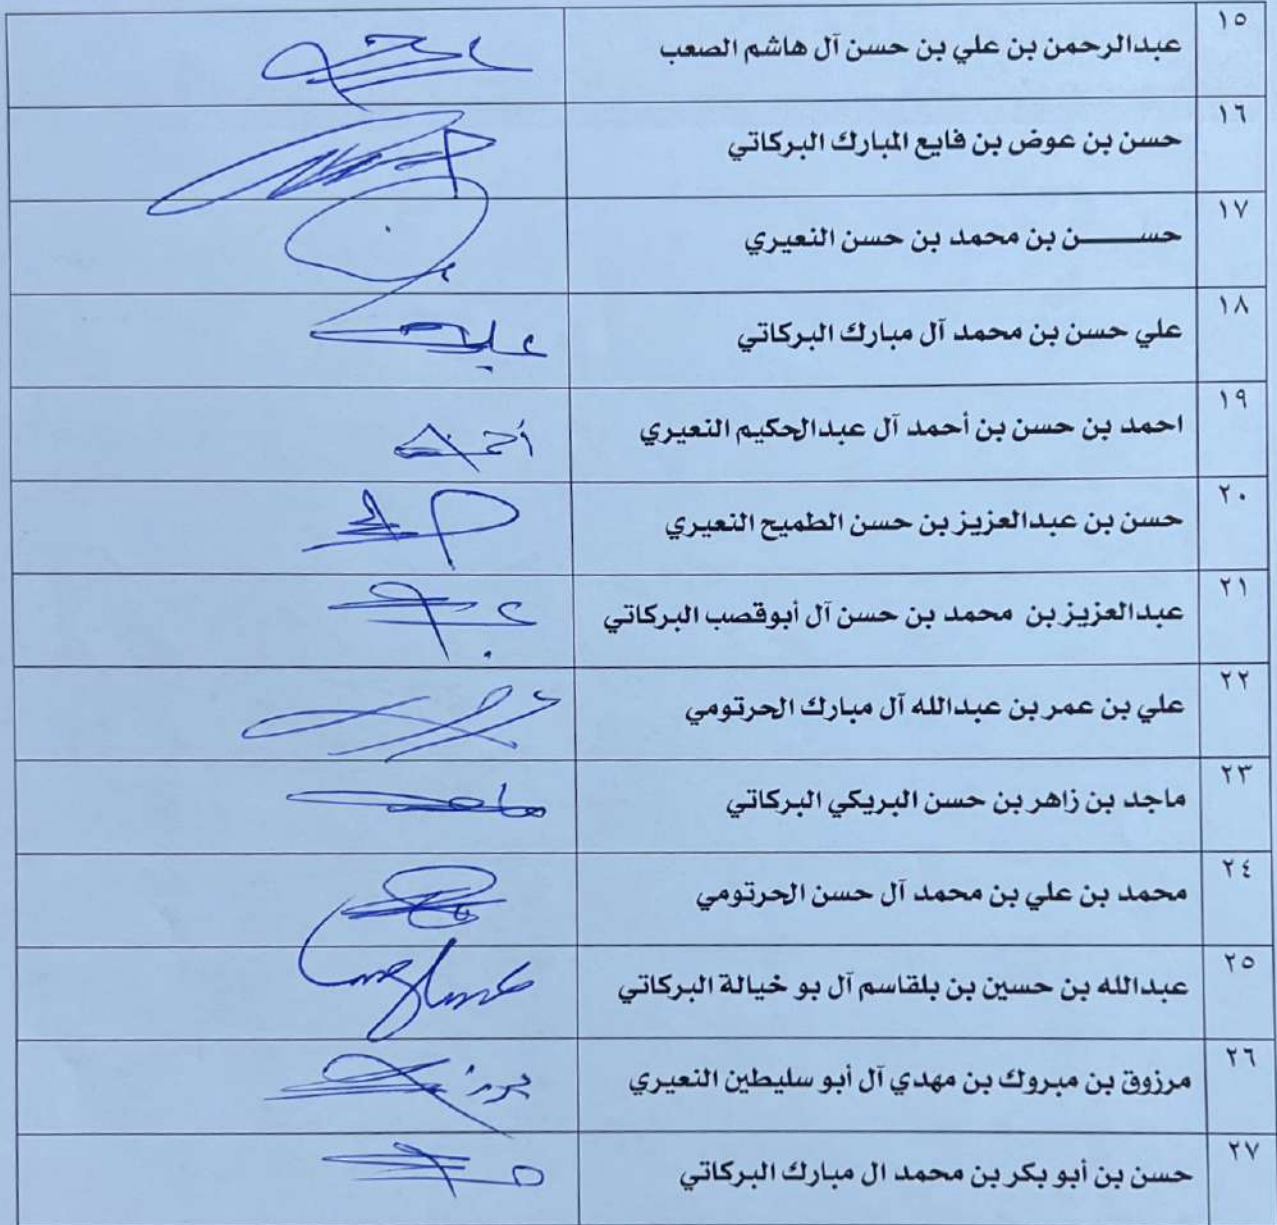 ١٥ عبدالرحمن بن علي بن حسن آل هاشم الصعب
١٦ حسن بن عوض بن فايع المبارك البركاتي
١٧ حســـــن بن محمد بن حسن النعيري
١٨ علي حسن بن محمد آل مبارك البركاتي
١٩ احمد بن حسن بن أحمد آل عبدالحكيم النعيري
٢٠ حسن بن عبدالعزيز بن حسن الطميح النعيري
٢١ عبدالعزيز بن محمد بن حسن آل أبوقصب البركاتي
٢٢ علي بن عمر بن عبدالله آل مبارك الحرتومي
٢٣ ماجد بن زاهر بن حسن البريكي البركاتي
٢٤ محمد بن علي بن محمد آل حسن الحرتومي
٢٥ عبدالله بن حسين بن بلقاسم آل بو خيالة البركاتي
٢٦ مرزوق بن مبروك بن مهدي آل أبو سليطين النعيري
٢٧ حسن بن أبو بكر بن محمد ال مبارك البركاتي